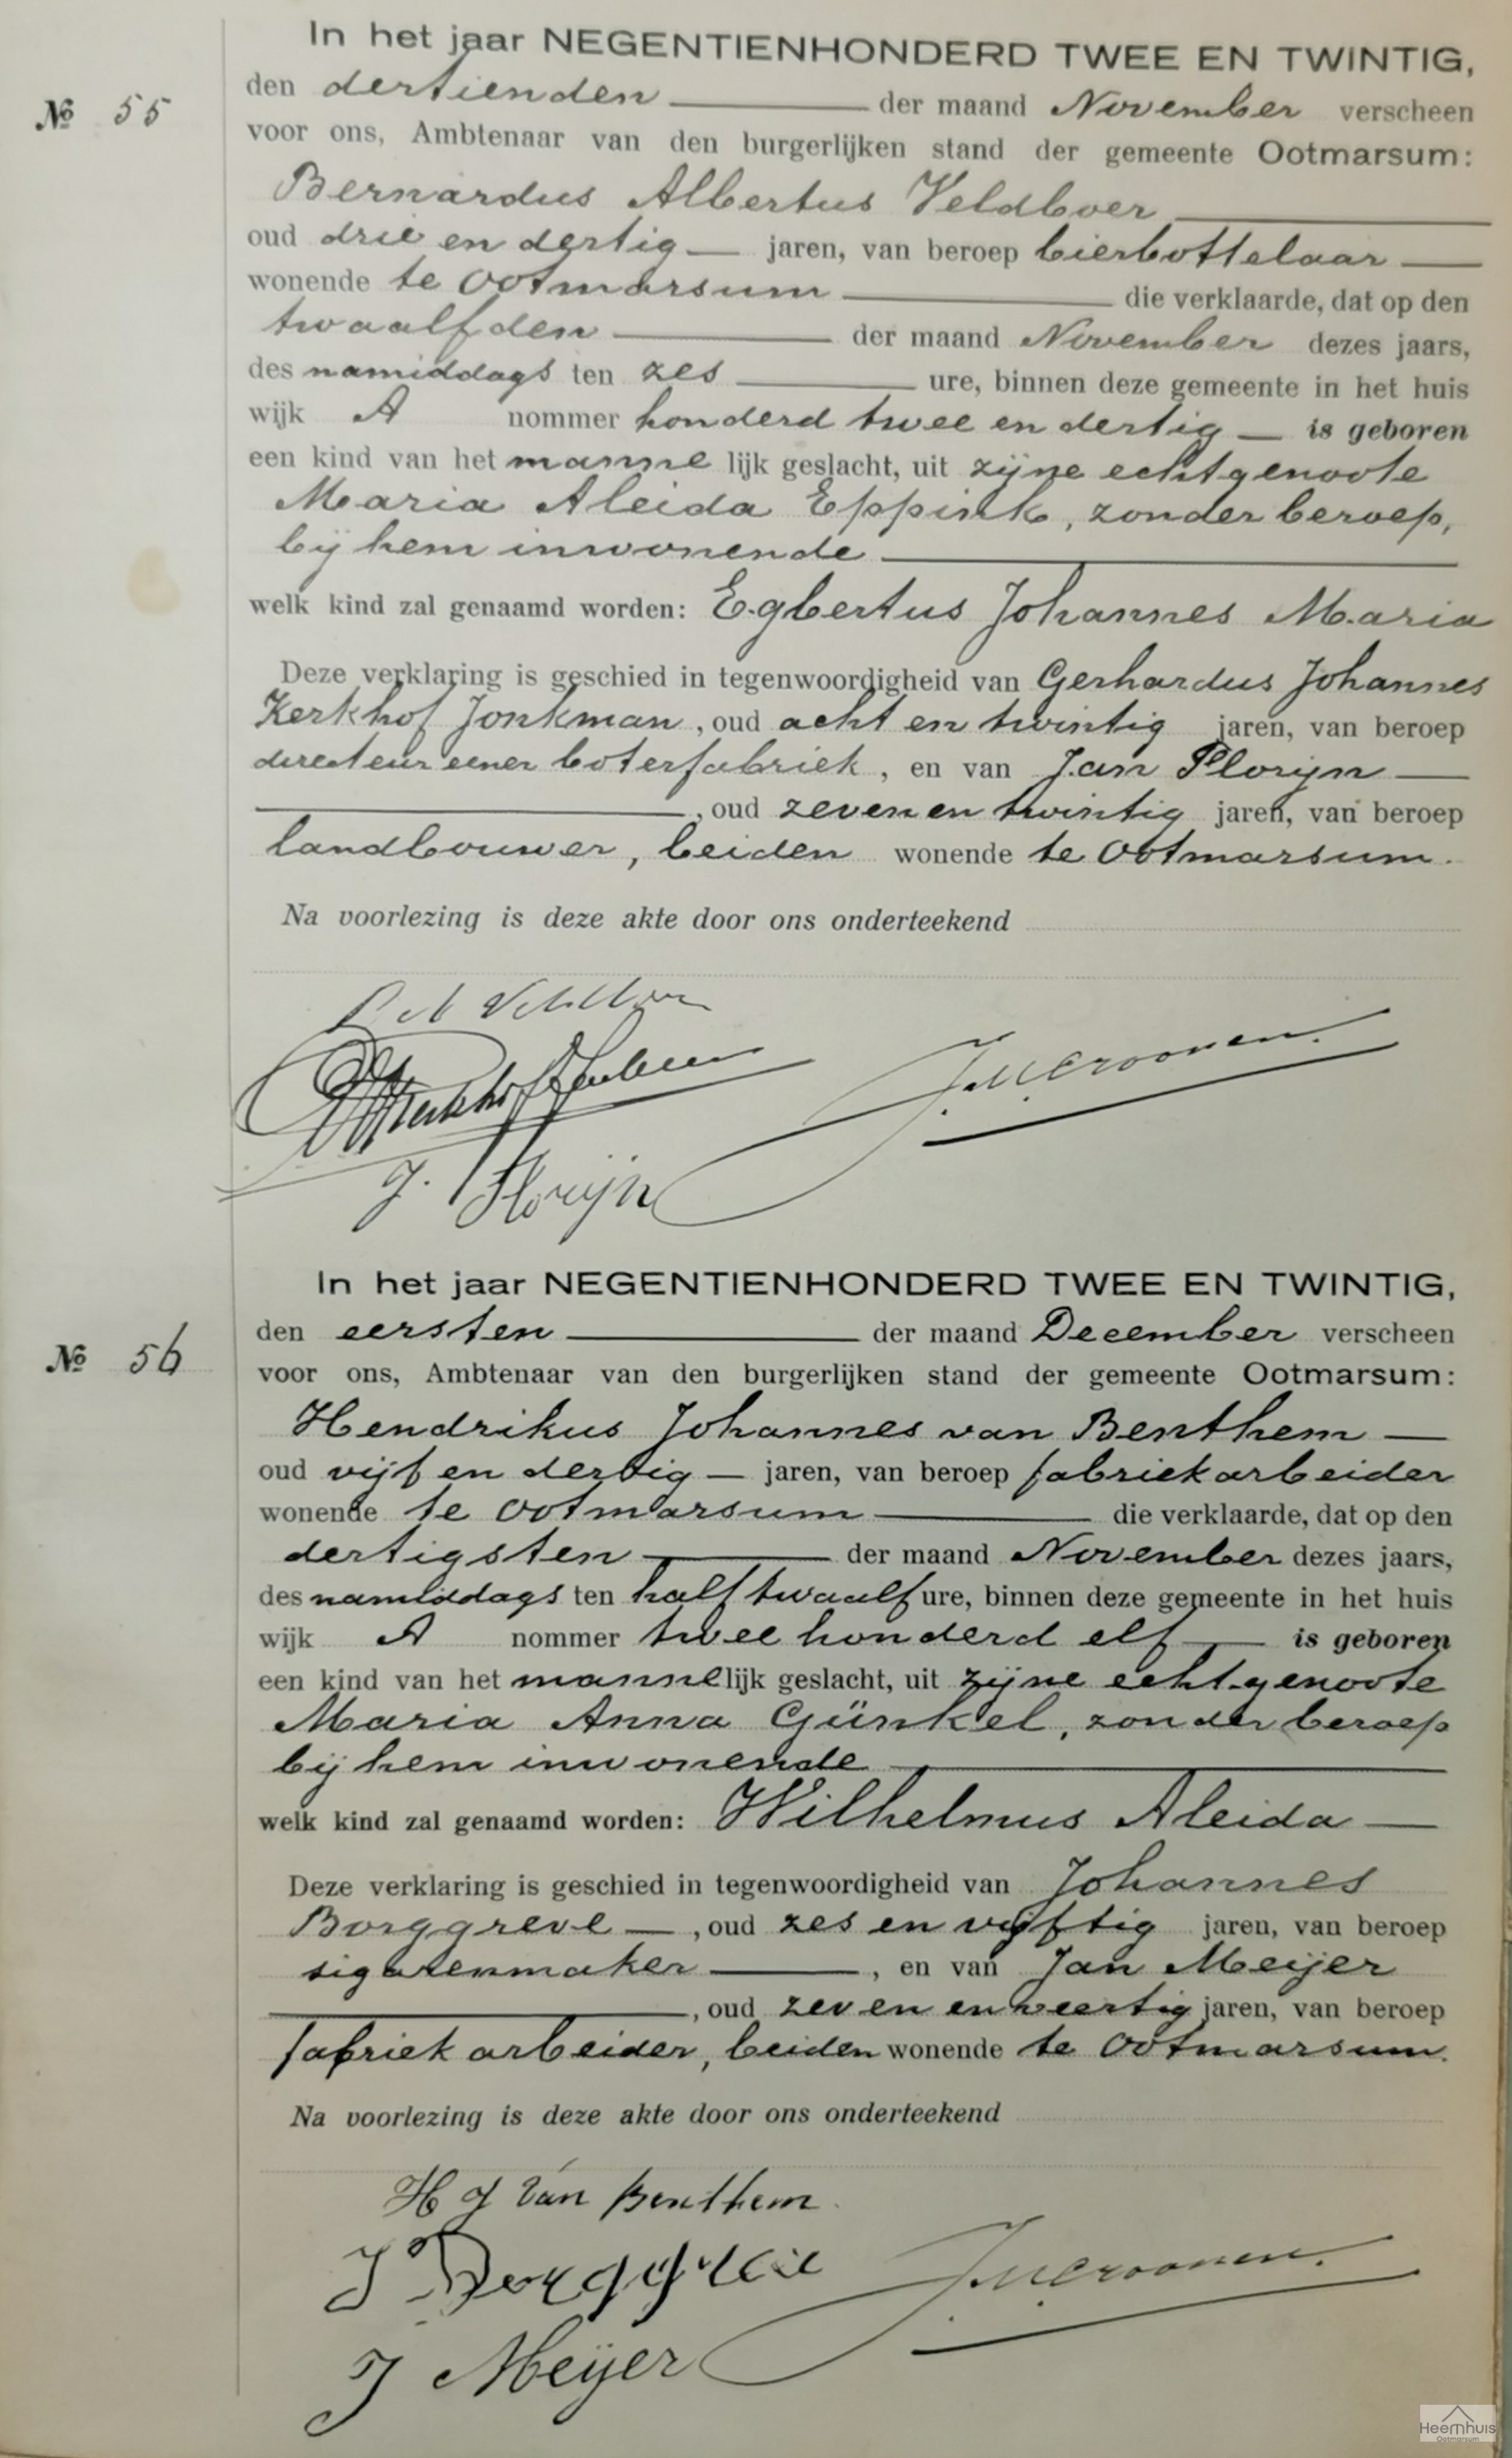 In het jaar NEGENTIENHONDERD TWEE EN TWINTIG,
№ 55 den dertienden der maand November verscheen
voor ons, Ambtenaar van den burgerlijken stand der gemeente Ootmarsum:
Bernardus Albertus Veldboer
oud drie en dertig jaren, van beroep bierbottelaar
wonende te Ootmarsum die verklaarde, dat op den
twaalfden der maand November dezes jaars,
des namiddags ten zes ure, binnen deze gemeente in het huis
wijk A nommer honderd twee en dertig is geboren
een kind van het mannelijk geslacht, uit zijne echtgenoote
Maria Aleida Eppink, zonder beroep,
bij hem inwonende
welk kind zal genaamd worden: Egbertus Johannes Maria
Deze verklaring is geschied in tegenwoordigheid van Gerhardus Johannes
Kerkhof Jonkman, oud acht en twintig jaren, van beroep
directeur eener boterfabriek, en van Jan Florijn
, oud zeven en twintig jaren, van beroep
landbouwer, beiden wonende te Ootmarsum.
Na voorlezing is deze akte door ons onderteekend
Veldboer
J. Florijn
In het jaar NEGENTIENHONDERD TWEE EN TWINTIG,
№ 56 den eersten der maand December verscheen
voor ons, Ambtenaar van den burgerlijken stand der gemeente Ootmarsum:
Hendrikus Johannes van Benthem
oud vijf en dertig jaren, van beroep fabriekarbeider
wonende te Ootmarsum die verklaarde, dat op den
dertigsten der maand November dezes jaars,
des namiddags ten half twaalf ure, binnen deze gemeente in het huis
wijk A nommer twee honderd elf is geboren
een kind van het mannelijk geslacht, uit zijne echtgenoote
Maria Anna Günkel, zonder beroep
bij hem inwonende
welk kind zal genaamd worden: Wilhelmus Aleida
Deze verklaring is geschied in tegenwoordigheid van Johannes
Borggreve, oud zes en vijftig jaren, van beroep
sigarenmaker, en van Jan Meijer
, oud zeven en veertig jaren, van beroep
fabriekarbeider, beiden wonende te Ootmarsum.
Na voorlezing is deze akte door ons onderteekend
H J van Benthem.
J Borggreve
J Meijer
Heemhuis
Ootmarsum